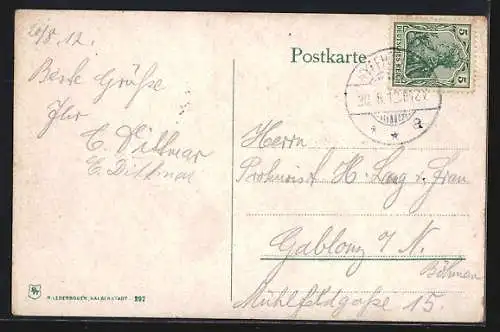 20/8.12.
Beste Grüße
Ihr
E. Dittmar
E. Dittmar
Postkarte
DEUTSCHES REICH
5
5
Herrn
Prokurist H. Lang u. Frau
Gablonz a/N.
Böhmen
Mühlfeldgasse 15.
R. LEDERBOGEN, HALBERSTADT - 297